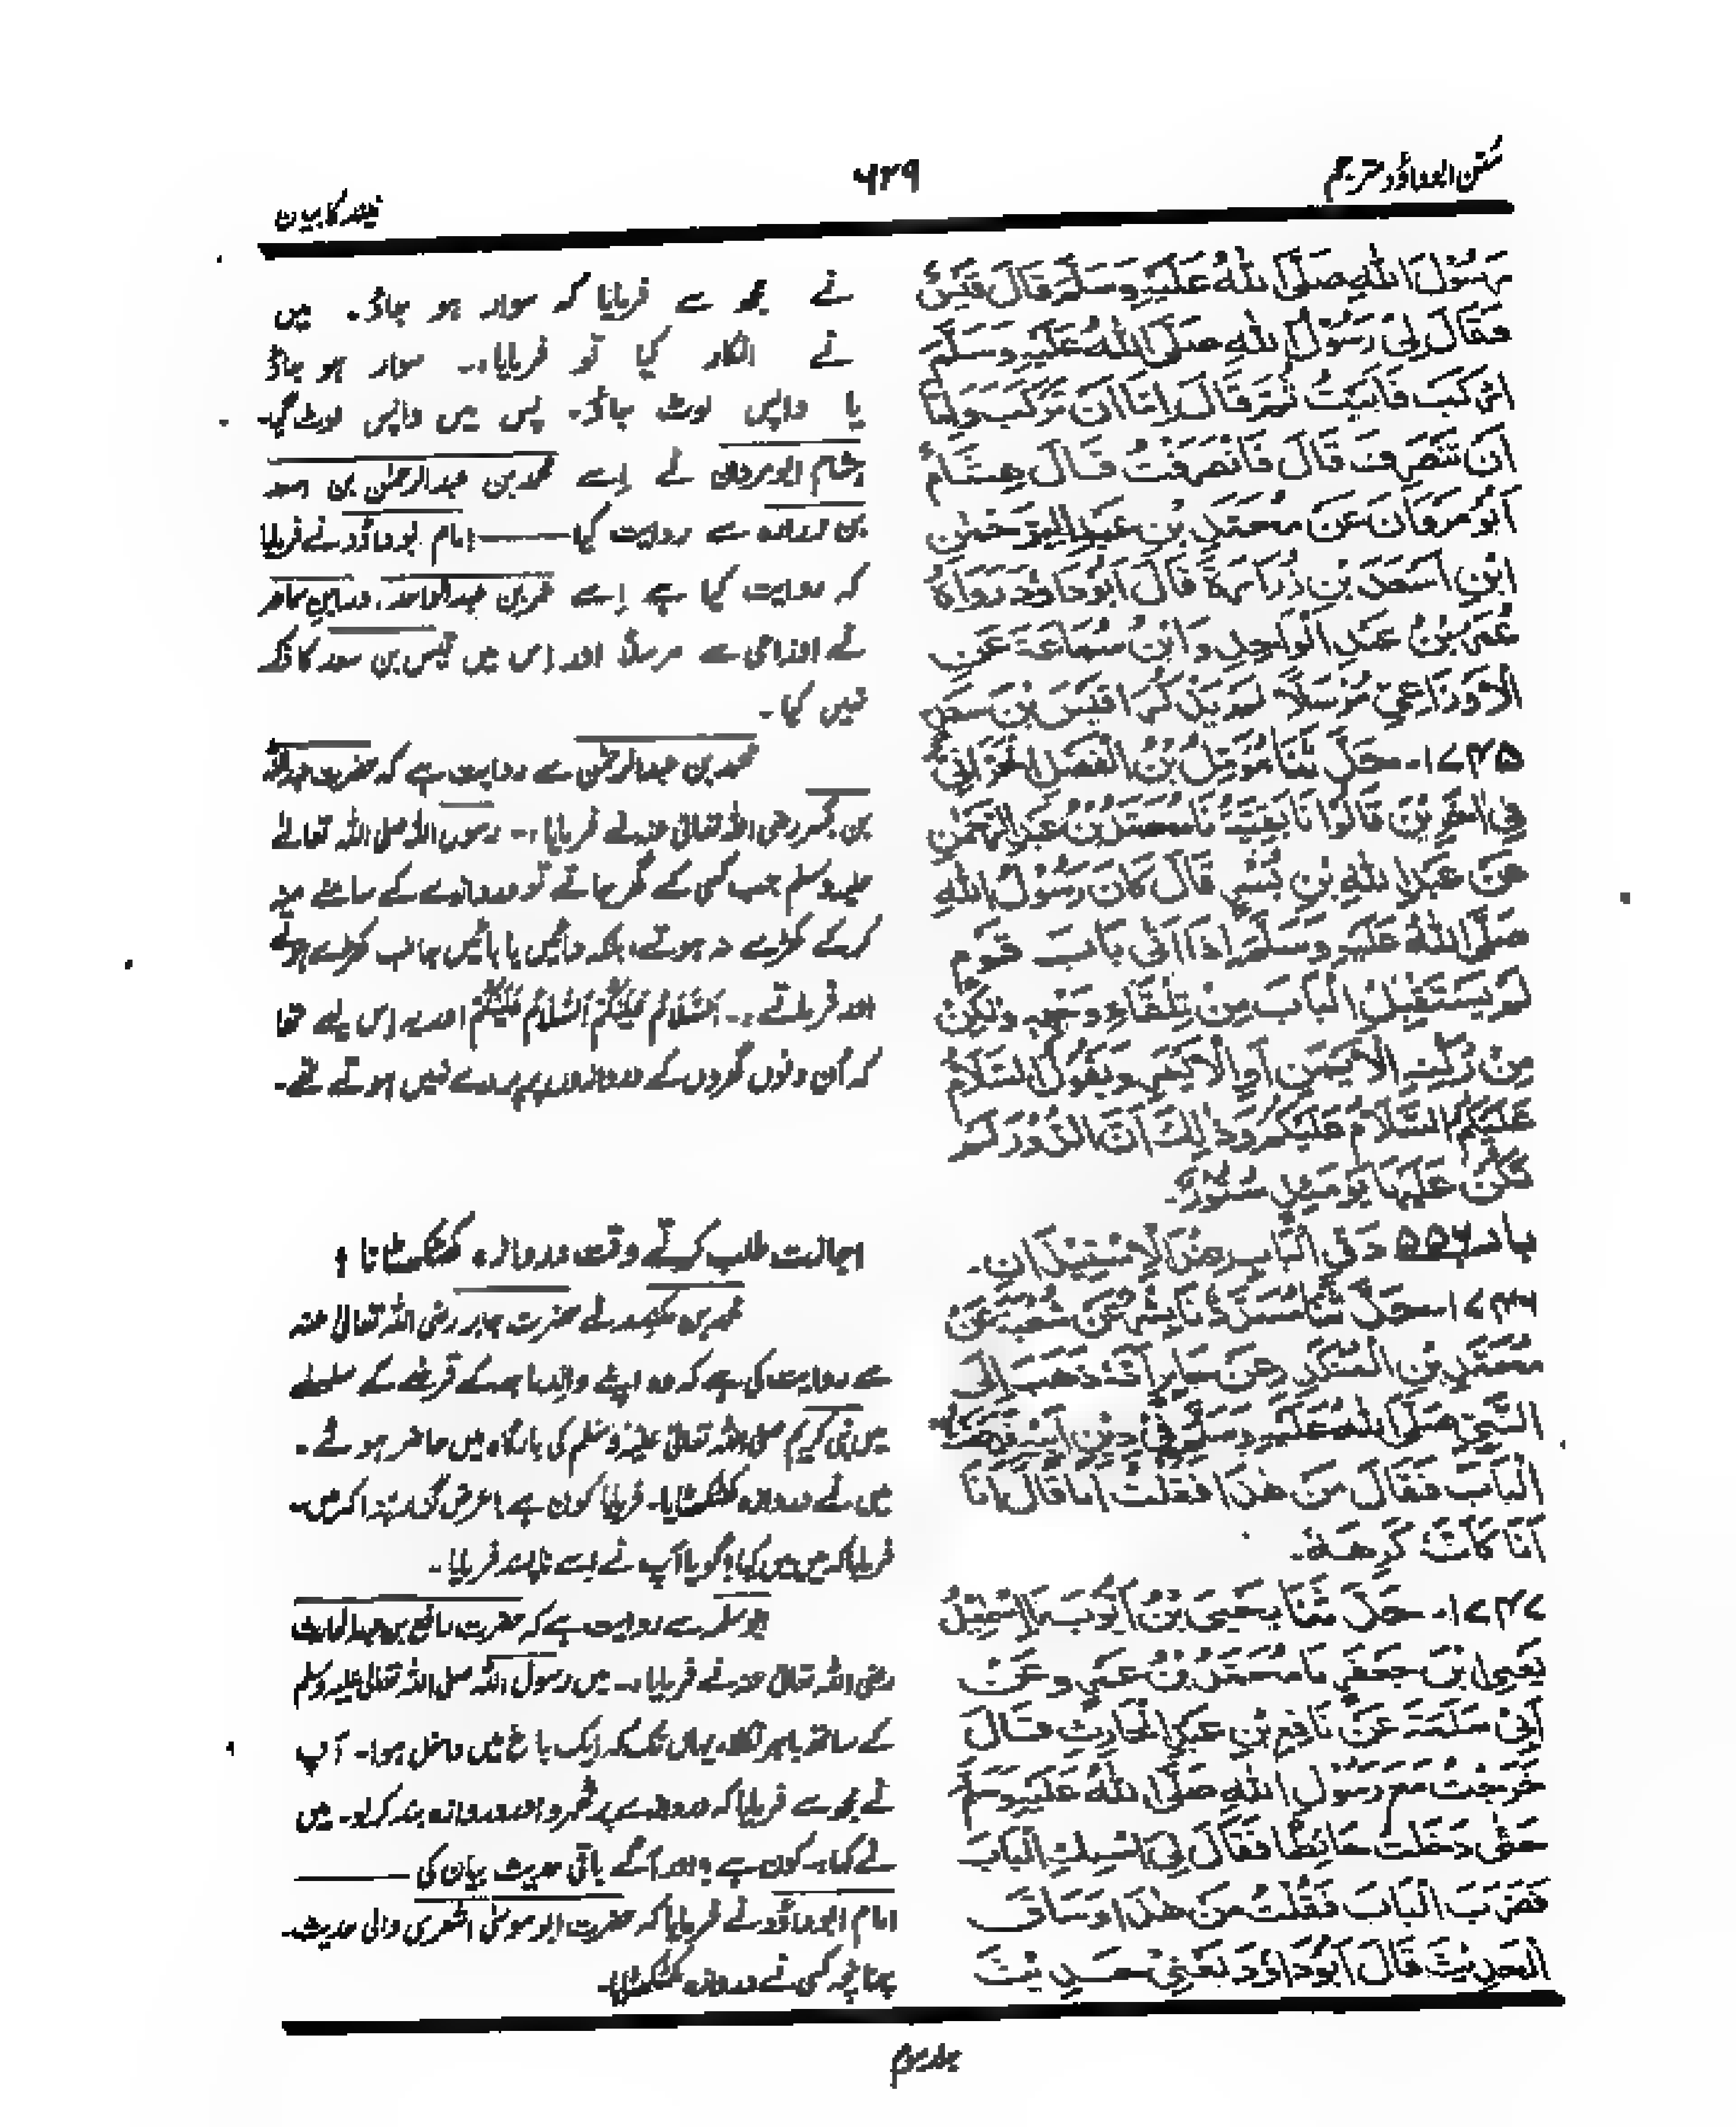 سنن ابوداؤد مترجم
۶۲۹
نیند کا بیان
رَسُوْلَ اللهِ صَلَّى اللهُ عَلَيْهِ وَسَلَّمَ قَالَ قَيْسٌ
فَقَالَ لِيْ رَسُوْلُ اللهِ صَلَّى اللهُ عَلَيْهِ وَسَلَّمَ
ارْكَبْ فَاَبَيْتُ ثُمَّ قَالَ اِمَّا اَنْ تَرْكَبَ وَاِمَّا
اَنْ تَنْصَرِفَ قَالَ فَانْصَرَفْتُ قَالَ هِشَامٌ
اَبُوْ مَرْوَانَ عَنْ مُحَمَّدِ بْنِ عَبْدِ الرَّحْمٰنِ
ابْنِ اَسْعَدَ بْنِ زُرَارَةَ قَالَ اَبُوْدَاؤدَ رَوَاهُ
عُمَرُ بْنُ عَبْدِ الْوَاحِدِ وَابْنُ سَمَاعَةَ عَنِ
الْاَوْزَاعِيِّ مُرْسَلًا لَمْ يَذْكُرَا قَيْسَ بْنَ سَعْدٍ
۱۷۴۵۔ حَدَّثَنَا مُؤَمَّلُ بْنُ الْفَضْلِ الْحَرَّانِيُّ
فِيْ اٰخَرِيْنَ قَالُوْا نَا بَقِيَّةُ نَا مُحَمَّدُ بْنُ عَبْدِ الرَّحْمٰنِ
عَنْ عَبْدِ اللهِ بْنِ بُسْرٍ قَالَ كَانَ رَسُوْلُ اللهِ
صَلَّى اللهُ عَلَيْهِ وَسَلَّمَ اِذَا اَتٰى بَابَ قَوْمٍ
لَمْ يَسْتَقْبِلِ الْبَابَ مِنْ تِلْقَاءِ وَجْهِهٖ وَلٰكِنْ
مِنْ رُكْنِهِ الْاَيْمَنِ اَوِ الْاَيْسَرِ وَيَقُوْلُ السَّلَامُ
عَلَيْكُمْ السَّلَامُ عَلَيْكُمْ وَذٰلِكَ اَنَّ الدُّوْرَ لَمْ
تَكُنْ عَلَيْهَا يَوْمَئِذٍ سُتُوْرٌ۔
باب ۵۵۶ دَقِّ الْبَابِ عِنْدَ الْاِسْتِيْذَانِ۔
۱۷۴۶۔ حَدَّثَنَا مُسَدَّدٌ نَا بِشْرٌ عَنْ شُعْبَةَ عَنْ
مُحَمَّدِ بْنِ الْمُنْكَدِرِ عَنْ جَابِرٍ اَنَّهٗ ذَهَبَ اِلَى
النَّبِيِّ صَلَّى اللهُ عَلَيْهِ وَسَلَّمَ فِيْ دَيْنِ اَبِيْهِ فَدَقَقْتُ
الْبَابَ فَقَالَ مَنْ هٰذَا فَقُلْتُ اَنَا قَالَ اَنَا
اَنَا كَاَنَّهٗ كَرِهَهٗ۔
۱۷۴۷۔ حَدَّثَنَا يَحْيَى بْنُ اَيُّوْبَ نَا اِسْمٰعِيْلُ
يَعْنِي ابْنَ جَعْفَرٍ نَا مُحَمَّدُ بْنُ عَمْرٍو عَنْ
اَبِيْ سَلَمَةَ عَنْ نَافِعِ بْنِ عَبْدِ الْحَارِثِ قَالَ
خَرَجْتُ مَعَ رَسُوْلِ اللهِ صَلَّى اللهُ عَلَيْهِ وَسَلَّمَ
حَتّٰى دَخَلْتُ حَائِطًا فَقَالَ لِيْ اَمْسِكِ الْبَابَ
فَضُرِبَ الْبَابُ فَقُلْتُ مَنْ هٰذَا وَسَاقَ
الْحَدِيْثَ قَالَ اَبُوْدَاؤدَ يَعْنِيْ حَدِيْثَ
نے مجھ سے فرمایا کہ سوار ہو جاؤ۔ میں
نے انکار کیا تو فرمایا:۔ سوار ہو جاؤ
یا واپس لوٹ جاؤ۔ پس میں واپس لوٹ گیا۔
ہشام ابومروان نے اِسے محمد بن عبدالرحمٰن بن اسعد
بن زرارہ سے روایت کیا ــــــ امام ابوداؤد نے فرمایا
کہ روایت کیا ہے اِسے عمر بن عبدالواحد، اور ابنِ سماعہ
نے اوزاعی سے مرسلاً اور اِس میں قیس بن سعد کا ذکر
نہیں کیا۔
محمد بن عبدالرحمٰن سے روایت ہے کہ حضرت عبداللہ
بن بُسر رضی اللہ تعالیٰ عنہ نے فرمایا:۔ رسول اللہ صلی اللہ تعالےٰ
علیہ وسلم جب کسی کے گھر جاتے تو دروازے کے سامنے منہ
کر کے کھڑے نہ ہوتے، بلکہ دائیں یا بائیں جانب کھڑے ہوتے
اور فرماتے:۔ اَلسَّلَامُ عَلَيْكُمْ اَلسَّلَامُ عَلَيْكُمْ اور یہ اِس لیے تھا
کہ اُن دنوں گھروں کے دروازوں پر پردے نہیں ہوتے تھے۔
اجازت طلب کرتے وقت دروازہ کھٹکھٹانا؟
محمد بن منکدر نے حضرت جابر رضی اللہ تعالیٰ عنہ
سے روایت کی ہے کہ وہ اپنے والد ماجد کے قرضے کے سلسلے
میں نبی کریم صلی اللہ تعالیٰ علیہ وسلم کی بارگاہ میں حاضر ہوئے۔
میں نے دروازہ کھٹکھٹایا۔ فرمایا کون ہے؟ عرض گزار ہوا کہ میں۔
فرمایا کہ میں میں کیا؟ گویا آپ نے اسے ناپسند فرمایا۔
ابوسلمہ سے روایت ہے کہ حضرت نافع بن عبدالحارث
رضی اللہ تعالیٰ عنہ نے فرمایا:۔ میں رسول اللہ صلی اللہ تعالیٰ علیہ وسلم
کے ساتھ باہر نکلا، یہاں تک کہ ایک باغ میں داخل ہوا۔ آپ
نے مجھ سے فرمایا کہ دروازے پر ٹھہرو اور دروازہ بند کر لو۔ میں
نے کہا:۔ کون ہے؟ اور آگے باقی حدیث بیان کی ــــــ
امام ابوداؤد نے فرمایا کہ حضرت ابو موسٰی اشعری والی حدیث۔
چنانچہ کسی نے دروازہ کھٹکھٹایا۔
جلد سوم